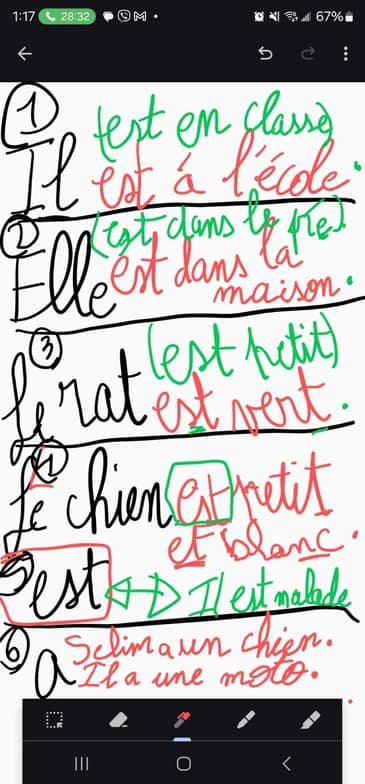 1:17 28:32 67%
1
(est en classe)
Il est à l'école.
2
(est dans le pré)
Elle est dans la
maison.
3
(est petit)
Le rat est vert.
4
Le chien est petit
et blanc.
5 est ↔ Il est malade
6
Selim a un chien.
a Il a une moto.